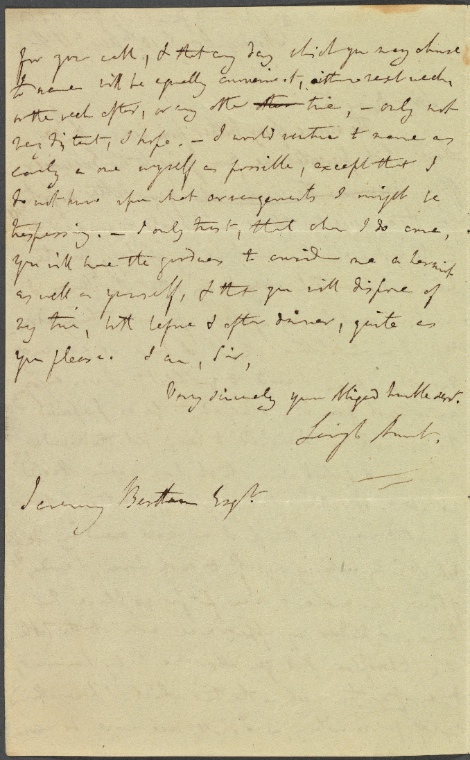 for your call, & that any day which you may choose
to name will be equally convenient, either next week,
or the week after, or any other time, – only not
very distant, I hope. – I would venture to name as
early a one myself as possible, except that I
do not know upon what arrangements I might be
trespassing. – I only trust, that when I do come,
you will have the goodness to consider me a hermit
as well as yourself, & that you will dispose of
my time, both before & after dinner, quite as
you please. I am, Sir,
Very sincerely your obliged humble servt.
Leigh Hunt.
Jeremy Bentham Esqr.